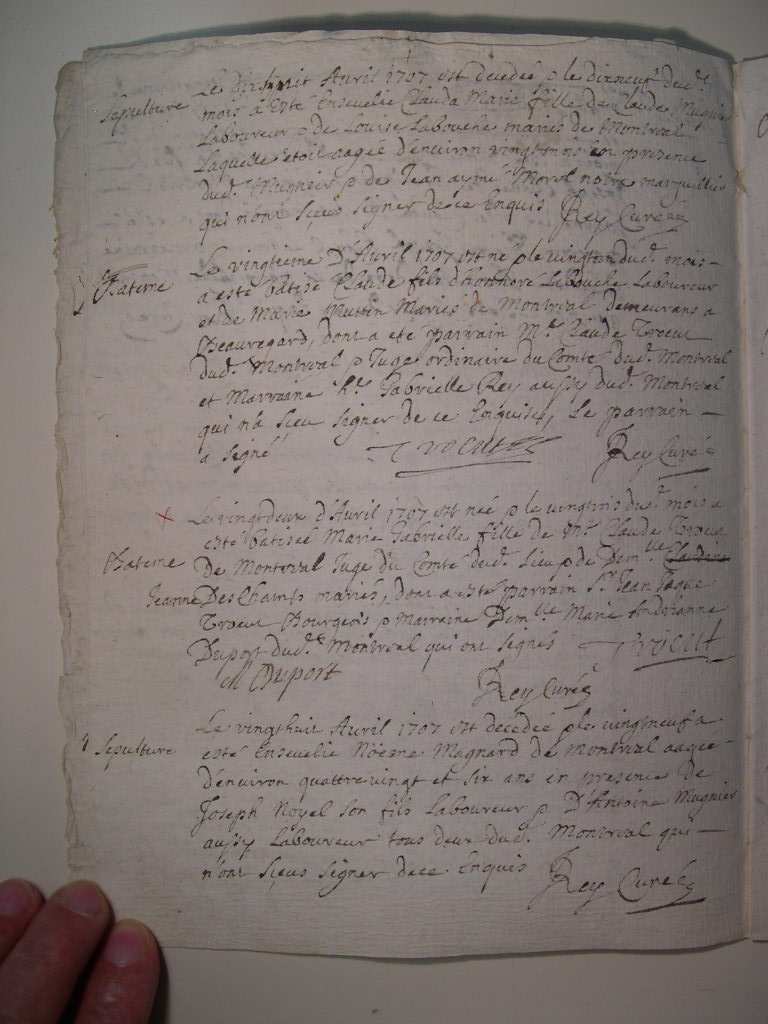 Sepulture
Le dixhuit Avril 1707 est decedée & le dixneuf dud.
mois à esté Ensevelie Clauda Marie fille de Claude Mugnier
Laboureur & de Louise Labouche mariés de Montreal
Laquelle etoit aagée d'environ vingt en presence
dud. Mugnier & de Jean aimé Morel notre marguillier
qui n'ont sçeus signer de ce Enquis Rey Curé
Bateme
Le vingtieme d'Avril 1707 est né & le vingt dud. mois
a esté batisé Claude fils d'honnoré Labouche Laboureur
et de Marie Muttin Mariés de Montreal demeurans a
Beauregard, dont a ete parrain Mr. Claude Trocu
dud. Montreal & Juge ordinaire du Comté dud. Montreal
et Marraine Gabrielle Rey aussy dud. Montreal
qui n'a sceu signer de ce Enquise, Le parrain
a signé Trocut Rey Curé
Bateme
Le vingtdeux d'Avril 1707 est née & le vingttrois dud. mois a
esté batisée Marie Gabrielle fille de Mr. Claude Trocu
de Montreal Juge du Comté dud. Lieu & de Demlle
Jeanne Deschamps mariés, dont a esté parrain Sr. Jean Jaque
Trocut Bourgeois & marraine Demlle Marie Andrianne
Duport dud. Montreal qui ont signés Trocut
M Duport
Rey Curé
Sepulture
Le vingthuit Avril 1707 est decedée & le vingtneuf a
esté Ensevelie Nöeme Magnard de Montreal aagée
d'environ quattre vingt et six ans en presence de
Joseph Noyel son fils Laboureur & D'Antoine Mugnier
aussy Laboureur tous deux dud. Montreal qui
n'ont sçeus signer de ce Enquis Rey Curé